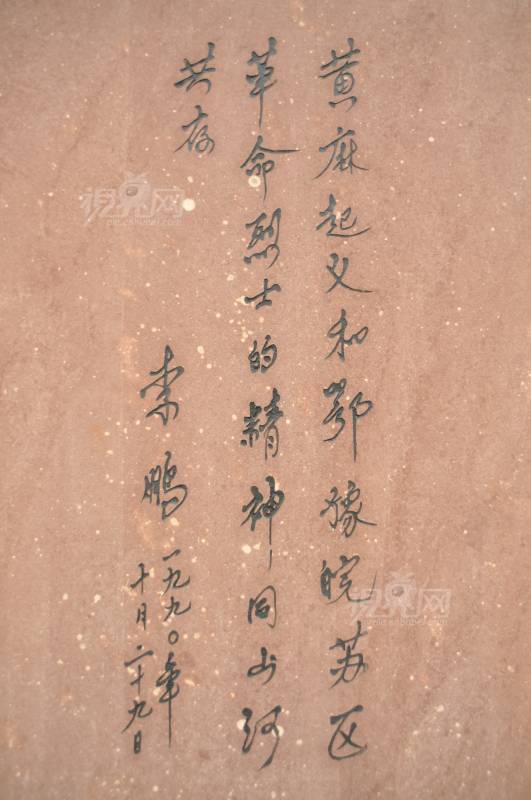 黄麻起义和鄂豫皖苏区
革命烈士的精神同山河
共存
李鹏
一九九〇年
十月二十九日
视界网
视界网